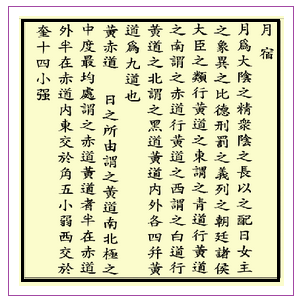 月宿
月爲大陰之精衆陰之長以之配日女主
之象異之比德刑罰之義列之朝廷諸侯
大臣之類行黃道之東謂之青道行黃道
之南謂之赤道行黃道之西謂之白道行
黃道之北謂之黑道黃道内外各四幷黃
道爲九道也
黃赤道 日之所由謂之黃道南北極之
中度最均處謂之赤道黃道者半在赤道
外半在赤道内東交於角五小弱西交於
奎十四小强